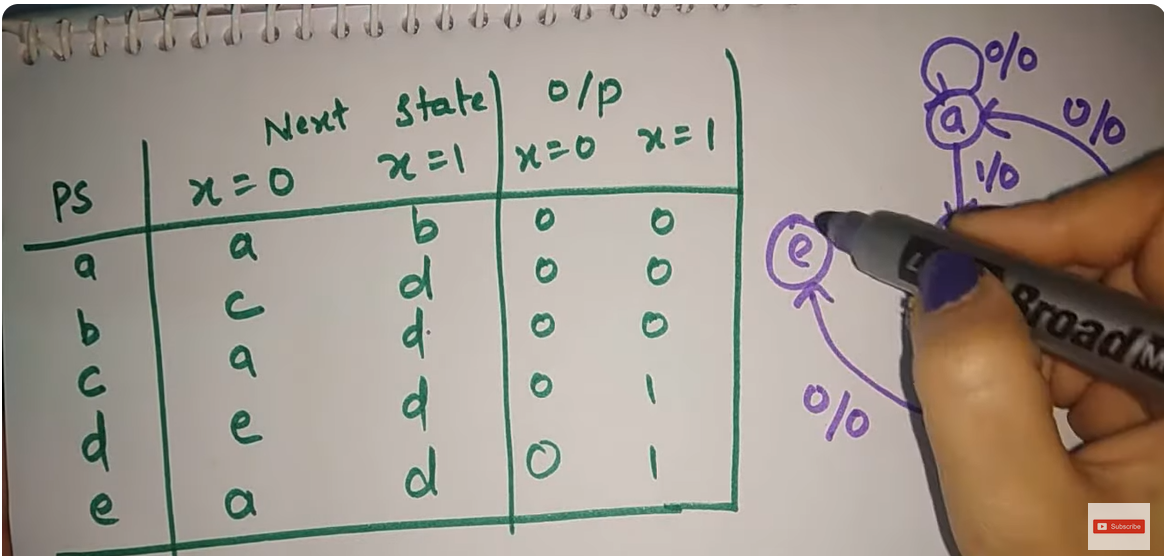 Next State O/P
PS x=0 x=1 x=0 x=1
a a b 0 0
b c d 0 0
c a d 0 0
d e d 0 1
e a d 0 1
0/0
a
0/0
1/0
e
0/0
Broad
Subscribe